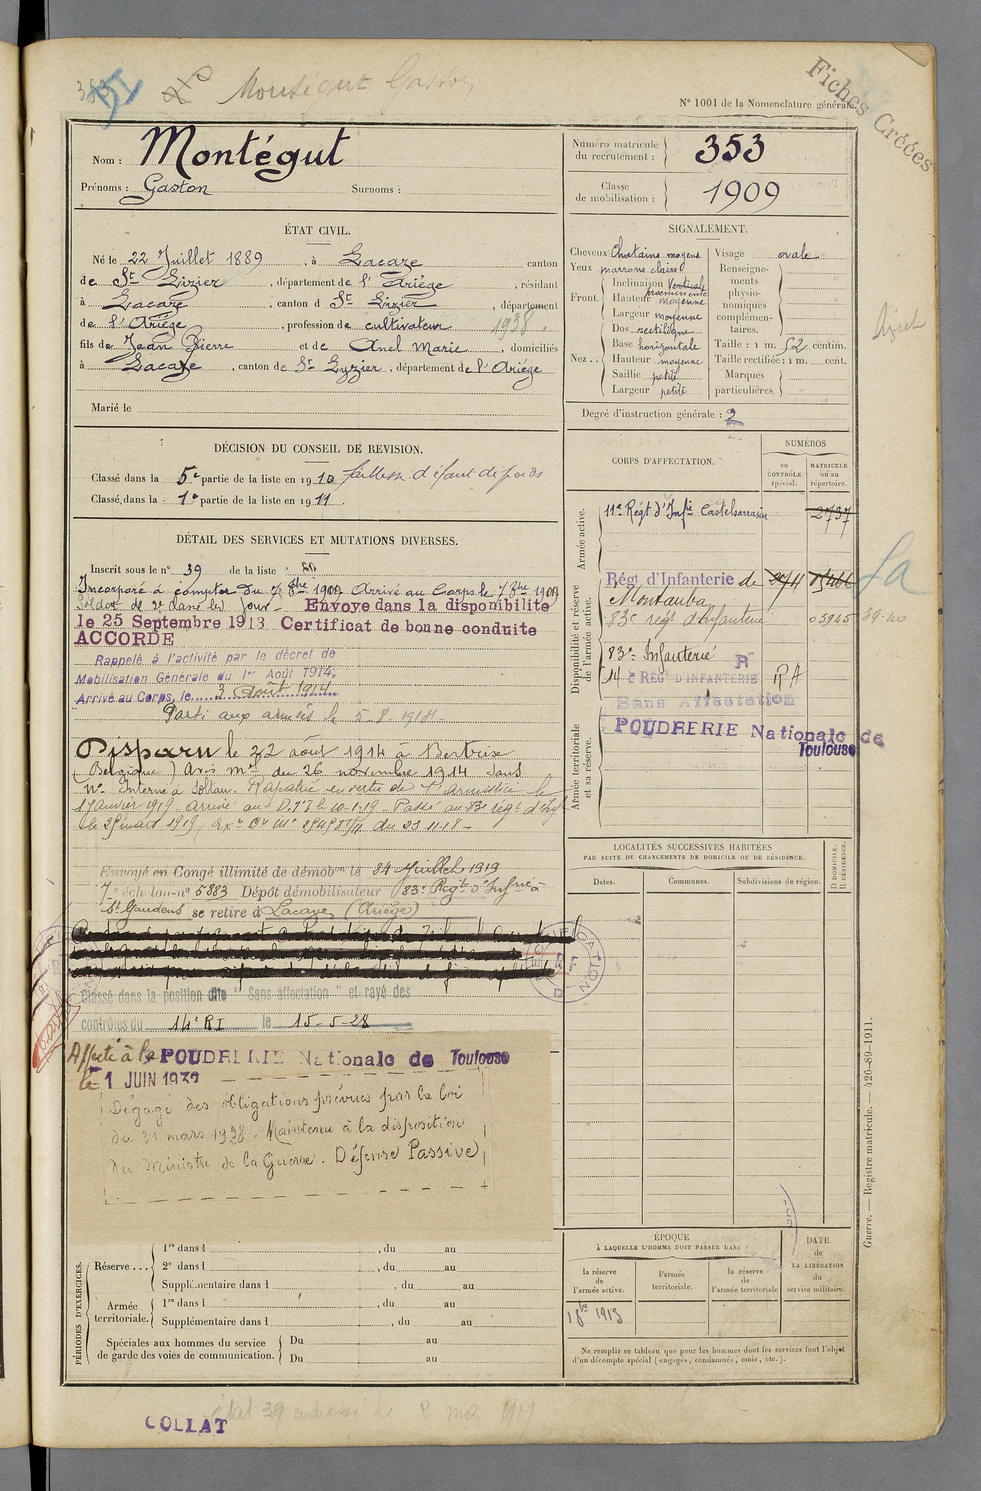 Montégut Gaston
Fiches Créées
N° 1001 de la Nomenclature générale.
Nom : Montégut
Prénoms : Gaston Surnoms :
Numéro matricule du recrutement : 353
Classe de mobilisation : 1909
ÉTAT CIVIL.
Né le 22 Juillet 1889, à Lacaze canton
de St Lizier, département de l'Ariège, résidant
à Lacaze, canton d St Lizier, département
de l'Ariège, profession de cultivateur 1938
fils de Jean Pierre et de Anel Marie, domiciliés
à Lacaze, canton de St Lyzier, département de l'Ariége
Marié le
SIGNALEMENT.
Cheveux Chatains moyens
Yeux marrons clairs
Front. Inclinaison Verticale
proéminente
Hauteur moyenne
Largeur moyenne
Nez.. Dos rectiligne
Base horizontale
Hauteur moyenne
Saillie petite
Largeur petite
Visage ovale
Renseignements physionomiques complémentaires.
Taille : 1 m. 52 centim.
Taille rectifiée : 1 m. cent.
Marques particulières.
Degré d'instruction générale : 2
DÉCISION DU CONSEIL DE REVISION.
Classé dans la 5e partie de la liste en 1910 faiblesse défaut de poids
Classé dans la 1e partie de la liste en 1911
DÉTAIL DES SERVICES ET MUTATIONS DIVERSES.
Inscrit sous le n° 39 de la liste
Incorporé à compter du Arrivé au Corps le
Soldat de 2e classe led. jour. Envoye dans la disponibilite
le 25 Septembre 1913 Certificat de bonne conduite
ACCORDE
Rappelé à l'activité par le décret de
Mobilisation Générale du 1er Août 1914.
Arrivé au Corps, le 3 Août 1914
Parti aux armées le 5-8-1914
Disparu le 22 août 1914 à Bertrix
(Belgique) Avis mel du 26 novembre 1914 dans
Interné à Soltau. Rapatrié en vertu de l'Armistice le
janvier 1919 arrivé au le 10-1-19 Passé au 83e régt d'Inf
le mars 1919 du 23-11-18
Envoyé en Congé illimité de démobon le 24 Juillet 1919
7e échelon n° 5883 Dépôt démobilisateur 83e Régt d'Infrie à
St Gaudens se retire à Lacaze (Ariège)
Classé dans la position dite "Sans affectation" et rayé des
contrôles du 14e RI le 15-5-28
Affecté à la POUDRERIE Nationale de Toulouse
le 1 JUIN 1932
Dégagé des obligations prévues par la loi
du 31 mars 1928. Maintenu à la disposition
du Ministre de la Guerre. Défense Passive
CORPS D'AFFECTATION.
NUMÉROS
au CONTRÔLE spécial.
MATRICULE ou au répertoire.
Armée active.
11e Régt d'Infie Castelsarrasin 2737
Disponibilité et réserve de l'armée active.
Régt d'Infanterie de
Montauban
83e régt d'Infanterie 03945 39-40
83e Infanterie R
14e RÉGT D'INFANTERIE RA
Sans Affectation
Armée territoriale et sa réserve.
POUDRERIE Nationale de
Toulouse
LOCALITÉS SUCCESSIVES HABITÉES
PAR SUITE DE CHANGEMENTS DE DOMICILE OU DE RÉSIDENCE.
Dates. Communes. Subdivisions de région. D DOMICILE. R RÉSIDENCE.
PÉRIODES D'EXERCICES.
Réserve ... 1re dans l , du au
2e dans l , du au
Supplémentaire dans l , du au
Armée territoriale. 1re dans l , du au
Supplémentaire dans l , du au
Spéciales aux hommes du service de garde des voies de communication. Du au
Du au
ÉPOQUE
À LAQUELLE L'HOMME DOIT PASSER DANS :
la réserve de l'armée active.
l'armée territoriale.
la réserve de l'armée territoriale
DATE de LA LIBÉRATION du service militaire.
1 8bre 1913
Ne remplir ce tableau que pour les hommes dont les services font l'objet
d'un décompte spécial (engagés, condamnés, omis, etc.).
Guerre. — Registre matricule. — 426-89-1911.
COLLAT